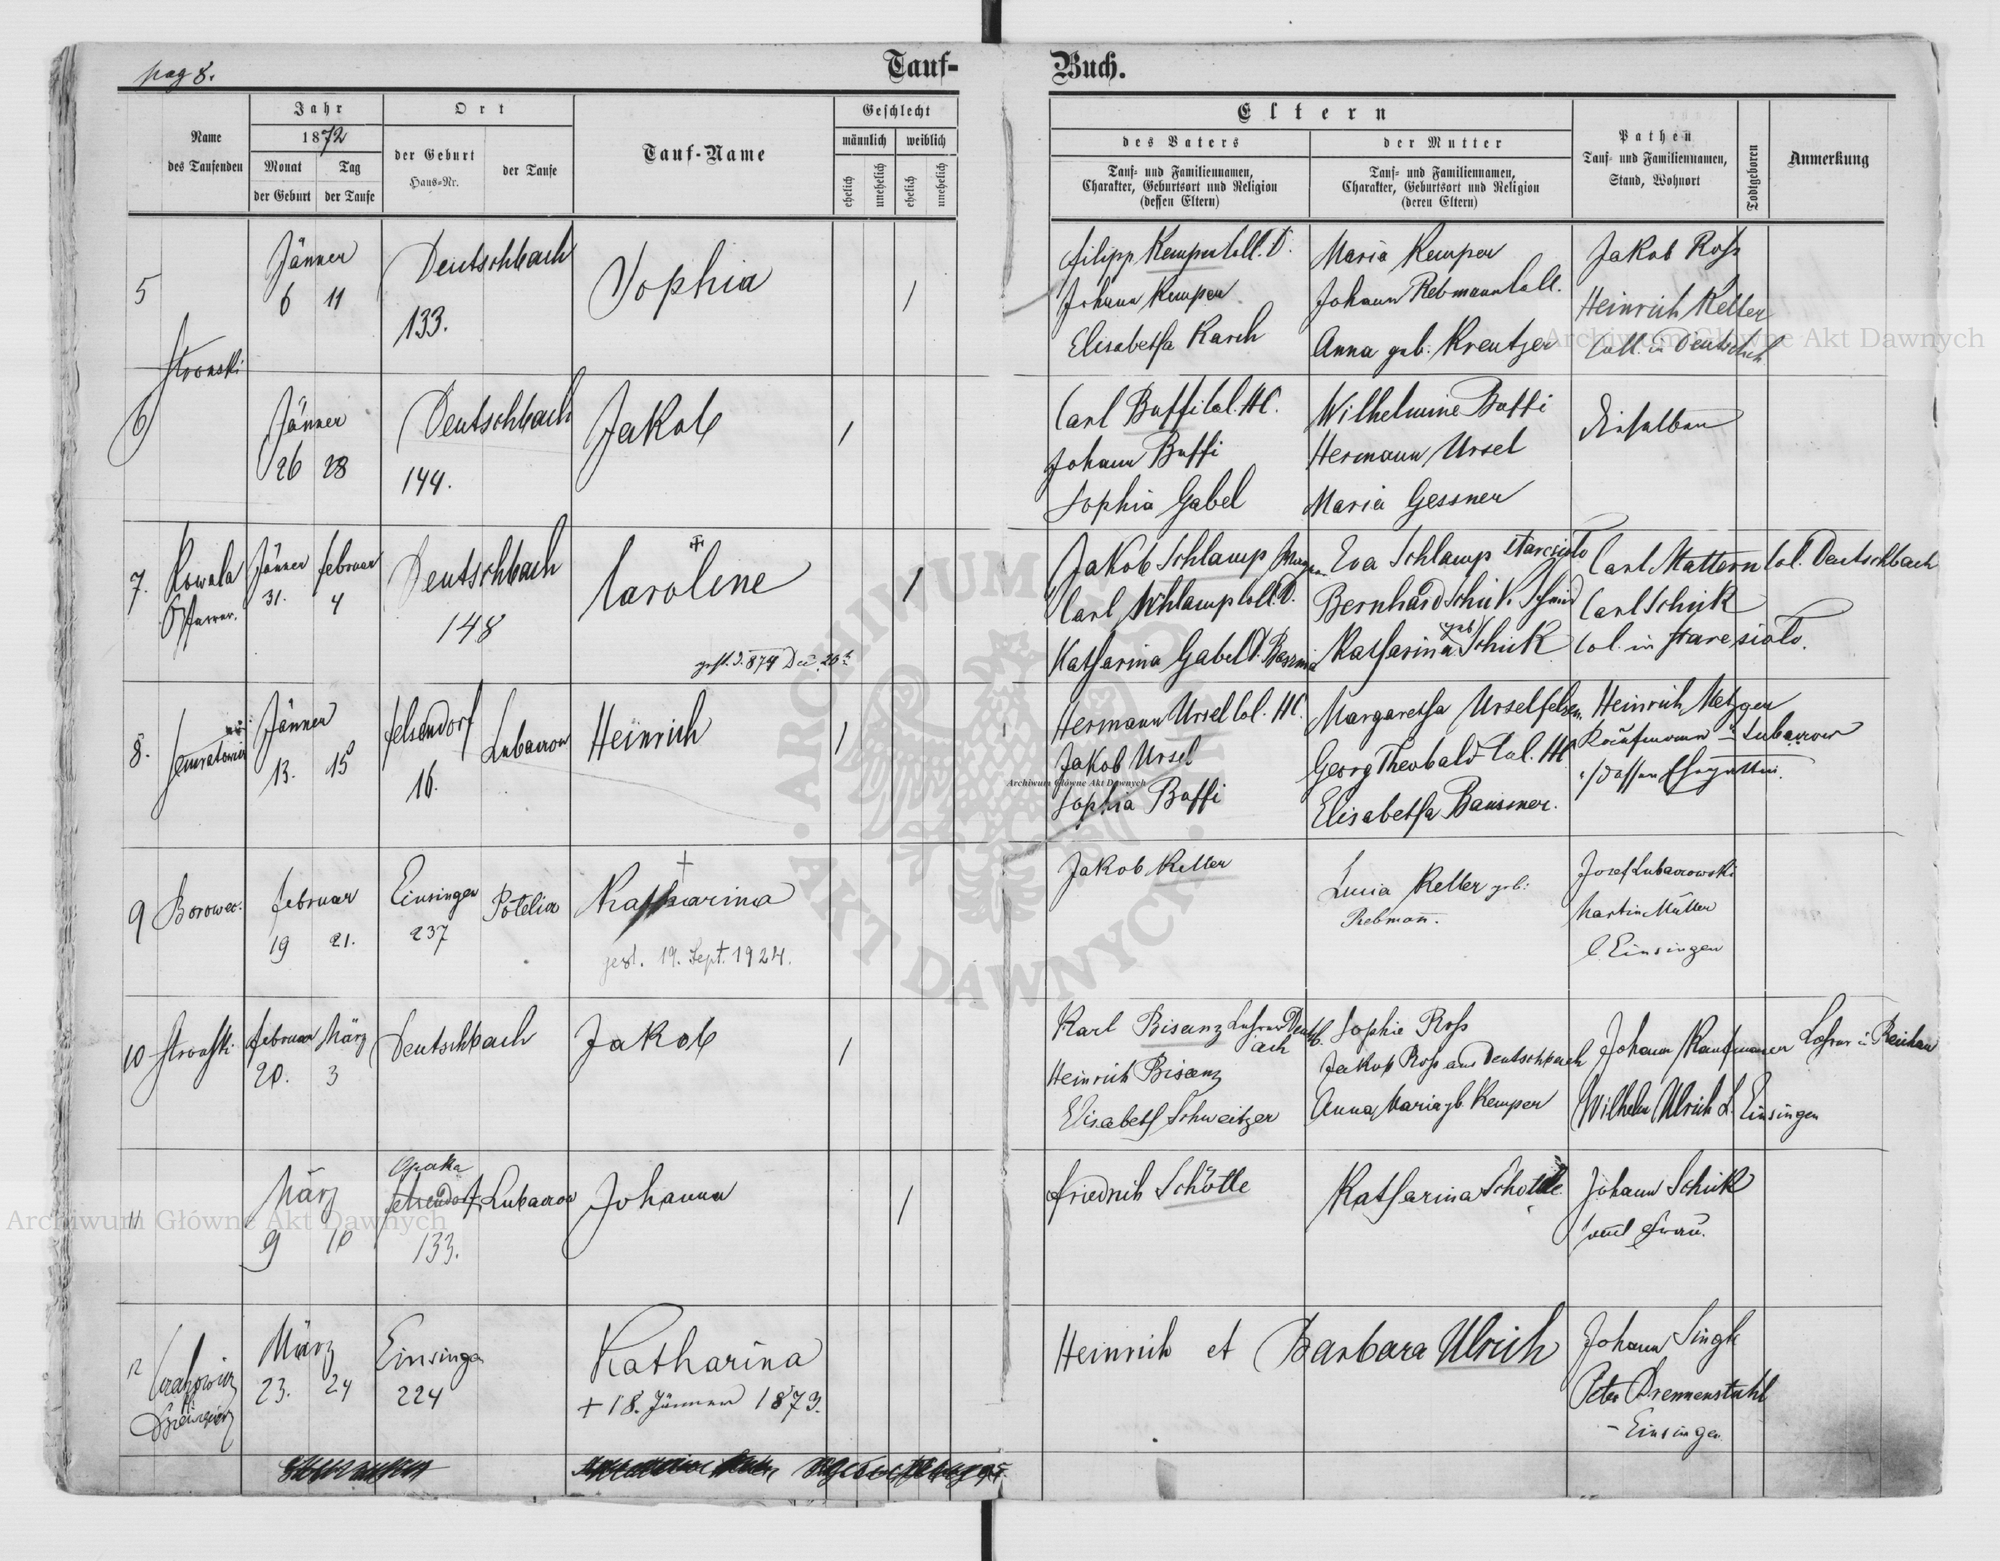 pag 8.
Tauf-
Buch.
Name
des Taufenden
Jahr
1872
Monat
Tag
der Geburt
der Taufe
Ort
der Geburt
Haus-Nr.
der Taufe
Tauf-Name
Geschlecht
männlich
weiblich
ehelich
unehelich
ehelich
unehelich
Eltern
des Vaters
Tauf- und Familiennamen,
Charakter, Geburtsort und Religion
(dessen Eltern)
der Mutter
Tauf- und Familiennamen,
Charakter, Geburtsort und Religion
(deren Eltern)
Pathen
Tauf- und Familiennamen,
Stand, Wohnort
Todtgeboren
Anmerkung
5
Stronski
Jänner
6 11
Deutschbach
133.
Sophia
1
Filipp Kemper Coll. D.
Johann Kemper
Elisabetha Karch
Maria Kemper
Johann Rebmann Coll.
Anna geb. Kreutzer
Jakob Ross
Heinrich Keller
Coll. in Deutschb.
6
Jänner
26 28
Deutschbach
144.
Jakob
1
Carl Buffi Col. HC.
Johann Buffi
Sophia Gabel
Wilhelmine Buffi
Hermann Ursel
Maria Gessner
Dieselben
7.
Kowala
Pfarrer.
Jänner Februar
31. 4
Deutschbach
148
Caroline
gest. 1874 Dec. 26t
1
Jakob Schlamp
Carl Schlamp Coll. D.
Katharina Gabel D.
Eva Schlamp Staresioło
Bernhard Schick Schmid
Katharina geb Schick
Carl Mattern Col. Deutschbach
Carl Schick
Col. in Staresioło.
8.
Jänner
13. 15
Felsendorf
16.
Lubaczow
Heinrich
1
Hermann Ursel Col. HC.
Jakob Ursel
Sophia Buffi
Margaretha Ursel Felsen.
Georg Theobald Col. HC
Elisabetha Bausmer.
Heinrich Metzger
Kaufmann in Lubaczow
dessen Ehegattin.
9
Borowec.
Februar
19 21.
Einsingen
237
Potelicz
Katharina
gest. 19. Sept. 1924.
Jakob Keller
Lucia Keller geb:
Rebmann.
Josef Lubaczowski
Martin Müller
Einsingen
10
Stronski
Februar März
20. 3
Deutschbach
Jakob
1
Karl Bisanz Lehrer Deutschb.
ach
Heinrich Bisanz
Elisabeth Schweitzer
Sophie Ross
Jakob Ross aus Deutschbach
Anna Maria gb. Kemper
Johann Kaufmann Lehrer in Reichau
Wilhelm Ulrich L. Einsingen
11
März
9 10
Opaka
133.
Lubaczow
Johanna
1
Friedrich Schötle
Katharina Schötle
Johann Schick
und Frau.
12
März
23. 24
Einsingen
224
Katharina
+ 18. Jänner 1873.
Heinrich et Barbara Ulrich
Johann Singh
Peter Brennenstuhl
- Einsingen
ARCHIWUM GŁÓWNE AKT DAWNYCH
Archiwum Główne Akt Dawnych
Archiwum Główne Akt Dawnych
Archiwum Główne Akt Dawnych